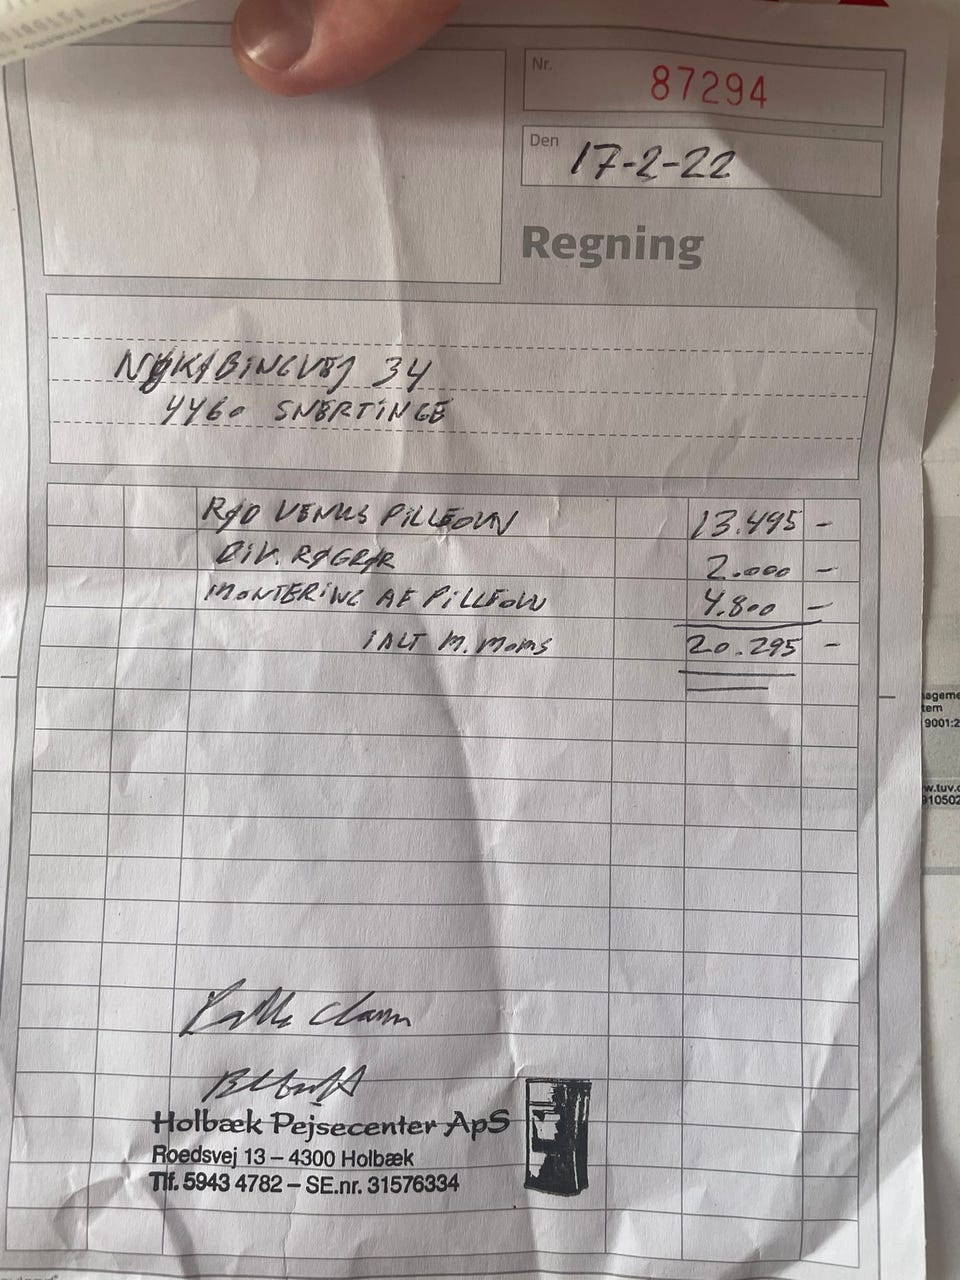 Nr.
87294
Den
17-2-22
Regning
NYKØBINGVEJ 34
4460 SNERTINGE
RØD VENUS PILLEOVN 13.495 -
DIV. RØGRØR 2.000 -
MONTERING AF PILLEOVN 4.800 -
IALT M. MOMS 20.295 -
Holbæk Pejsecenter ApS
Roedsvej 13 – 4300 Holbæk
Tlf. 5943 4782 – SE.nr. 31576334
9001:2
w.tuv.c
910502